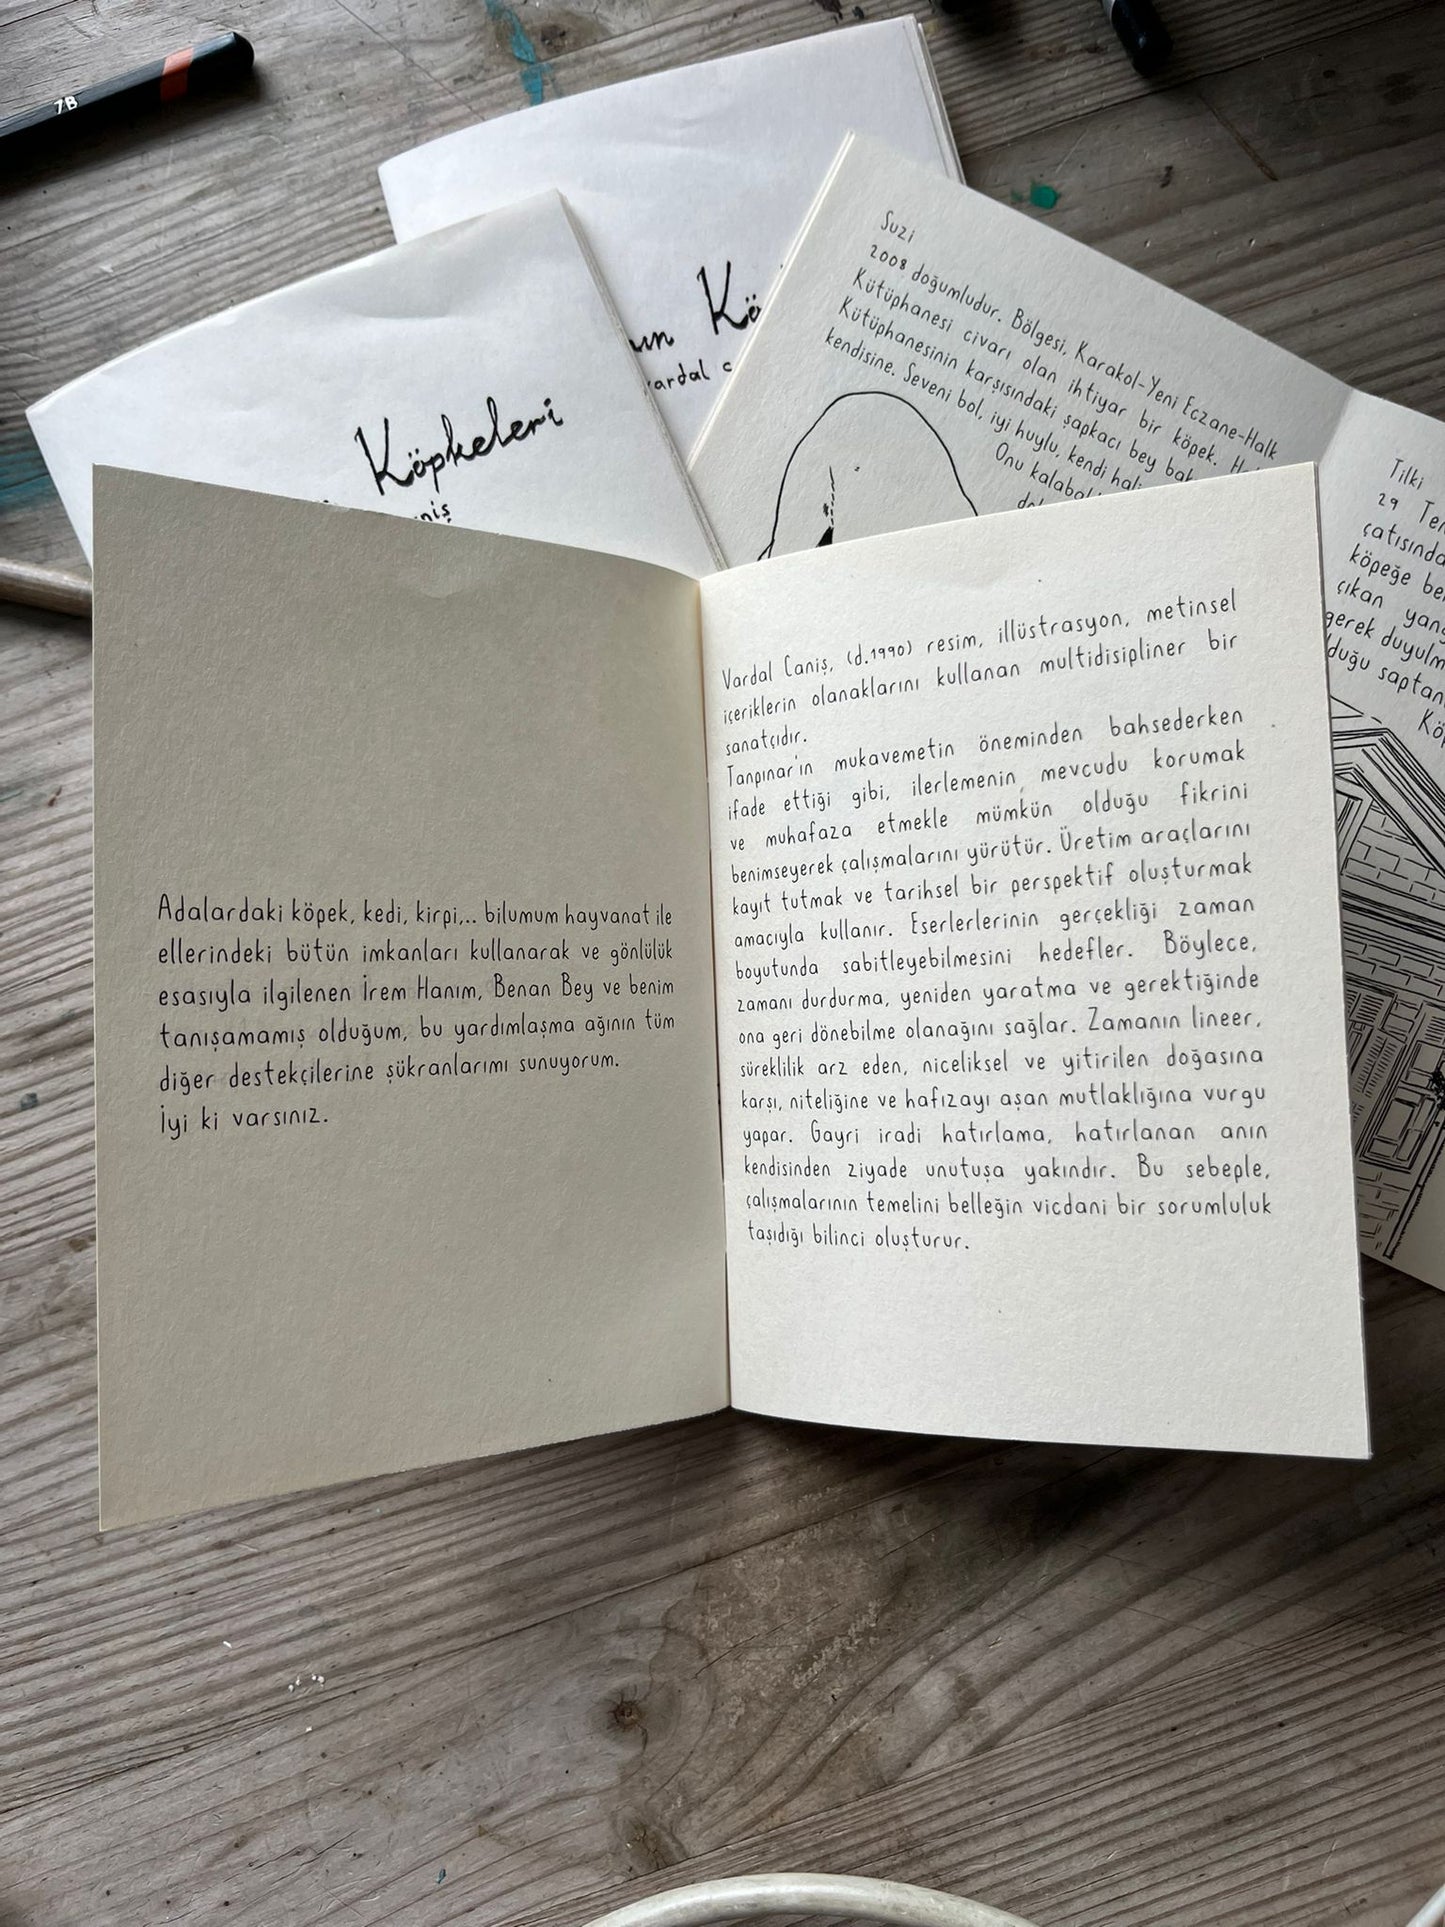 7B
Kö
vardal c
Köpkeleri
niş
Suzi
2008 doğumludur. Bölgesi, Karakol-Yeni Eczane-Halk
Kütüphanesi civarı olan ihtiyar bir köpek.
Kütüphanesinin karşısındaki şapkacı bey
kendisine. Seveni bol, iyi huylu, kendi
Onu
Tilki
29
çatısında
köpeğe
çıkan
gerek
saptan
Adalardaki köpek, kedi, kirpi,.. bilumum hayvanat ile
ellerindeki bütün imkanları kullanarak ve gönlülük
esasıyla ilgilenen İrem Hanım, Benan Bey ve benim
tanışamamış olduğum, bu yardımlaşma ağının tüm
diğer destekçilerine şükranlarımı sunuyorum.
İyi ki varsınız.
Vardal Caniş, (d.1990) resim, illüstrasyon, metinsel
içeriklerin olanaklarını kullanan multidisipliner bir
sanatçıdır.
Tanpınar'ın mukavemetin öneminden bahsederken
ifade ettiği gibi, ilerlemenin, mevcudu korumak
ve muhafaza etmekle mümkün olduğu fikrini
benimseyerek çalışmalarını yürütür. Üretim araçlarını
kayıt tutmak ve tarihsel bir perspektif oluşturmak
amacıyla kullanır. Eserlerlerinin gerçekliği zaman
boyutunda sabitleyebilmesini hedefler. Böylece,
zamanı durdurma, yeniden yaratma ve gerektiğinde
ona geri dönebilme olanağını sağlar. Zamanın lineer,
süreklilik arz eden, niceliksel ve yitirilen doğasına
karşı, niteliğine ve hafızayı aşan mutlaklığına vurgu
yapar. Gayri iradi hatırlama, hatırlanan anın
kendisinden ziyade unutuşa yakındır. Bu sebeple,
çalışmalarının temelini belleğin vicdani bir sorumluluk
taşıdığı bilinci oluşturur.